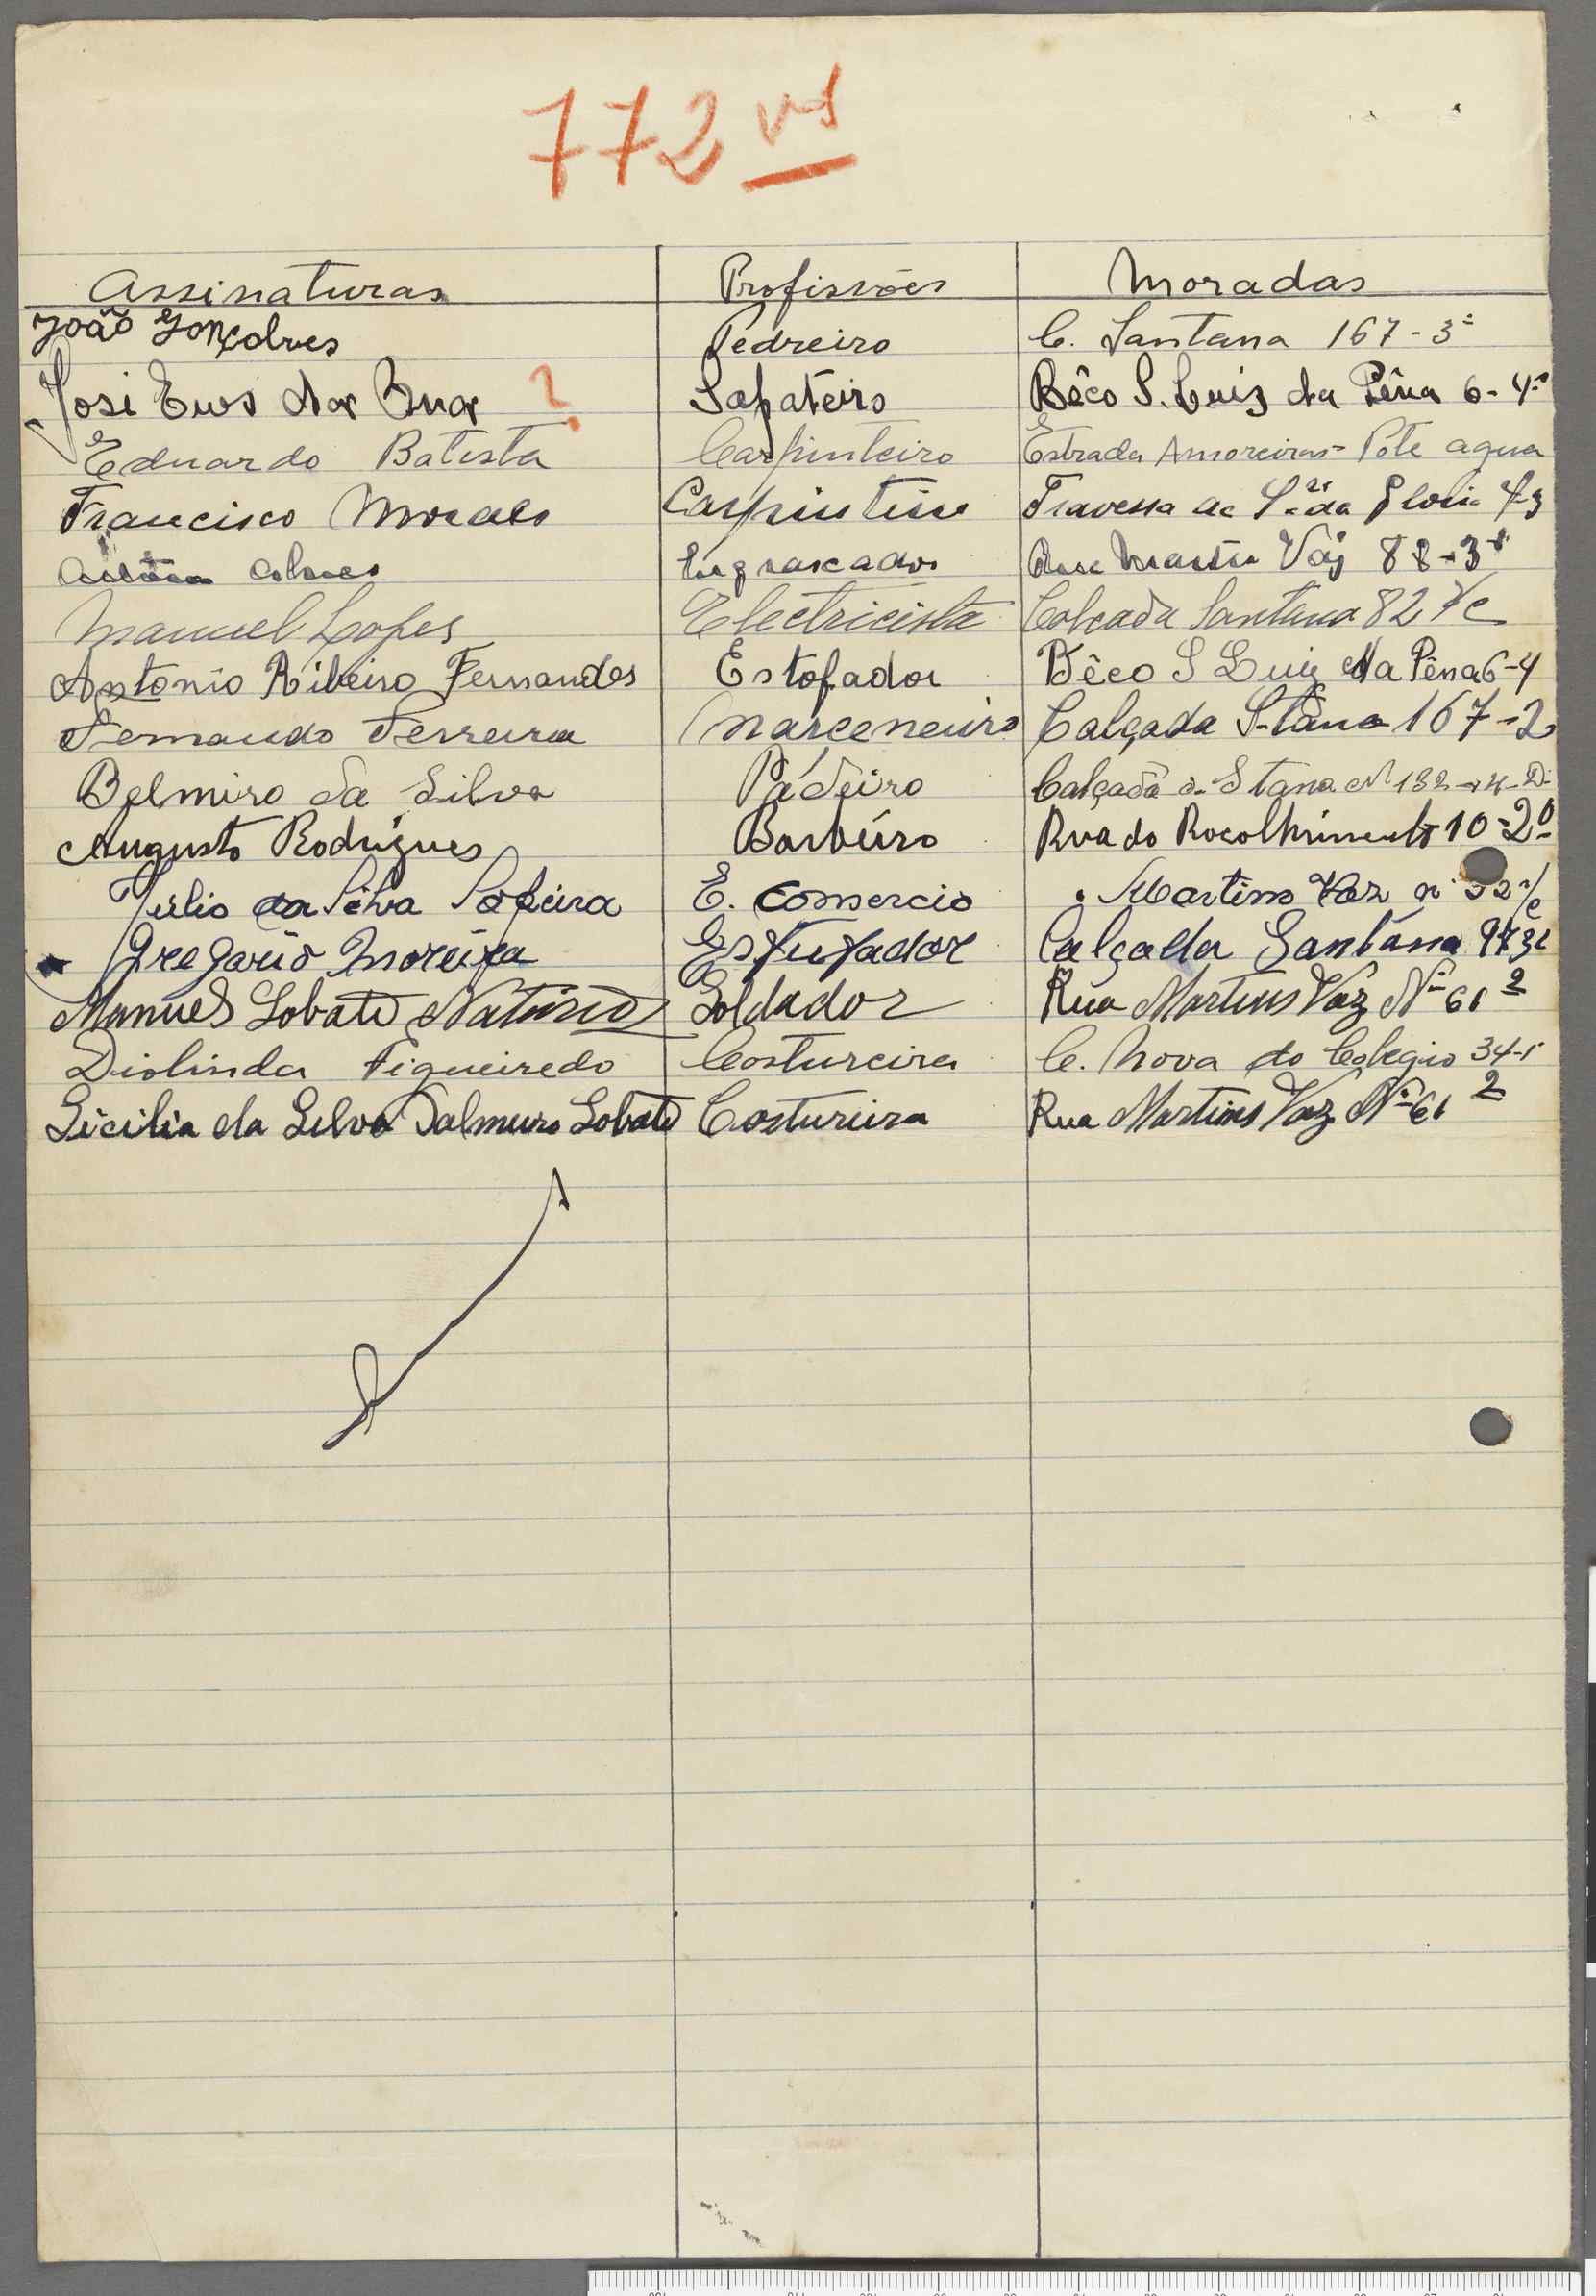 772 vs
Assinaturas Profissões Moradas
João Gonçalves Pedreiro C. Santana 167-3º
José Sapateiro Bêco S. Luiz da Pêna 6-4º
Eduardo Batista Carpinteiro Estrada Amoreiras Pote agua
Francisco Moraes Carpinteiro Travessa de
Engraxador Rua Martin Vaz 88-3º
Manuel Lopes Electricista Calcada Santana 82 r/c
Antonio Ribeiro Fernandes Estofador Bêco S Luiz da Pêna 6-4
Fernando Ferreira Marceneiro Calçada S-tana 167-2
Belmiro da Silva Pádeiro Calçada S tana Nº 132
Augusto Rodrigues Barbeiro Rua do Rocolhimento 10-2º
Julio da Silva E. comercio Martins Vaz nº r/c
Gregorio Moreira Calçada Santána
Manuel Lobato Natário Soldador Rua Martins Vaz Nº 61 2
Diolinda Figueiredo Costureira C. Nova do Colegio 34-1º
Sicilia da Silva Salmuro Lobato Costureira Rua Martins Vaz Nº 61 2